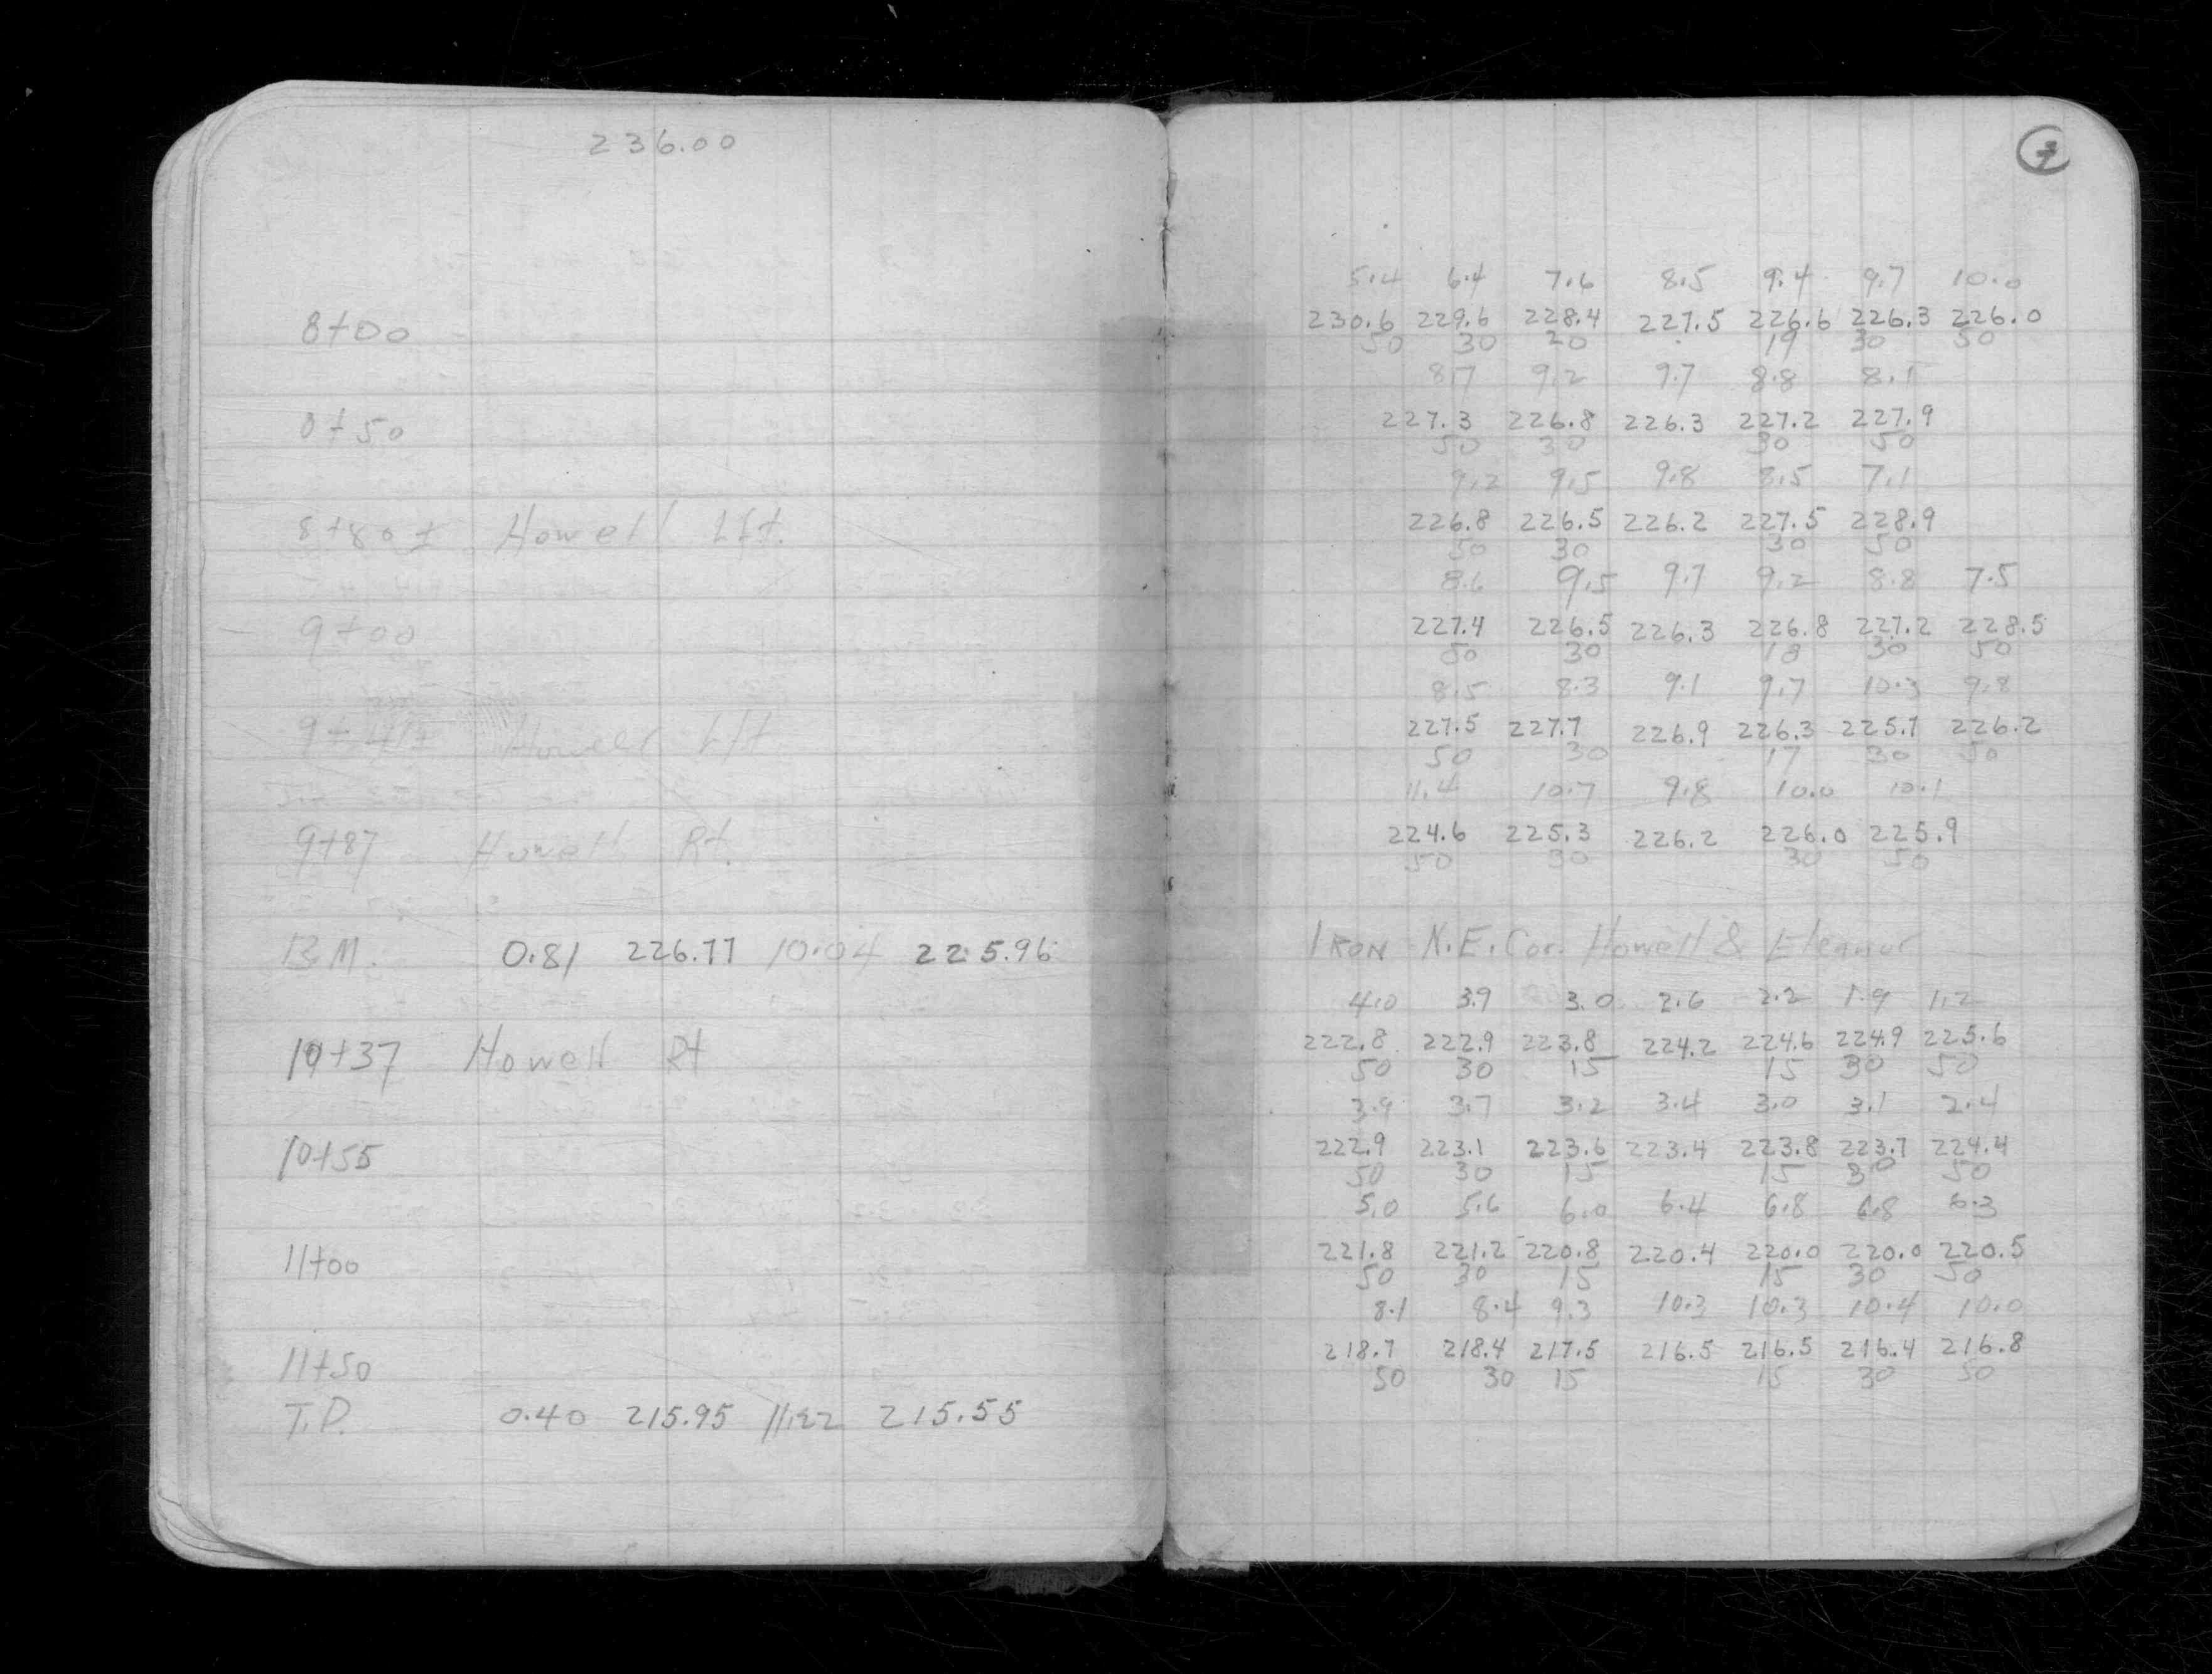 236.00
8+00
8+50
8+80± Howell Lft.
9+00
Howell Lft
9+87 Howell Rt.
B.M. 0.81 226.77 10.04 225.96
10+37 Howell Rt
10+55
11+00
11+50
T.P. 0.40 215.95 11.22 215.55
7
5.4 6.4 7.6 8.5 9.4 9.7 10.0
230.6 229.6 228.4 227.5 226.6 226.3 226.0
50 30 20 19 30 50
8.7 9.2 9.7 8.8 8.1
227.3 226.8 226.3 227.2 227.9
50 30 30 50
9.2 9.5 9.8 8.5 7.1
226.8 226.5 226.2 227.5 228.9
50 30 30 50
8.6 9.5 9.7 9.2 8.8 7.5
227.4 226.5 226.3 226.8 227.2 228.5
50 30 18 30 50
8.5 8.3 9.1 9.7 10.3 9.8
227.5 227.7 226.9 226.3 225.7 226.2
50 30 17 30 50
11.4 10.7 9.8 10.0 10.1
224.6 225.3 226.2 226.0 225.9
50 30 30 50
IRON N.E. Cor. Howell & Eleanor
4.0 3.9 3.0 2.6 2.2 1.9 1.2
222.8 222.9 223.8 224.2 224.6 224.9 225.6
50 30 15 15 30 50
3.9 3.7 3.2 3.4 3.0 3.1 2.4
222.9 223.1 223.6 223.4 223.8 223.7 224.4
50 30 15 15 30 50
5.0 5.6 6.0 6.4 6.8 6.8 6.3
221.8 221.2 220.8 220.4 220.0 220.0 220.5
50 30 15 15 30 50
8.1 8.4 9.3 10.3 10.3 10.4 10.0
218.7 218.4 217.5 216.5 216.5 216.4 216.8
50 30 15 15 30 50